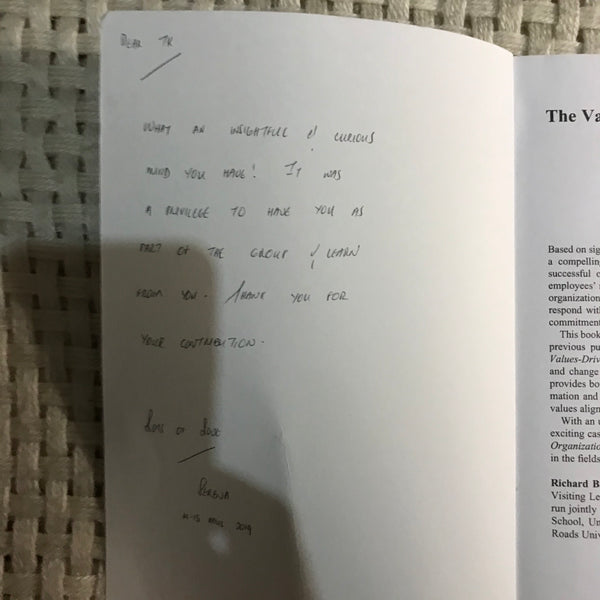 DEAR TK
WHAT AN INSIGHTFULL & CURIOUS
MIND YOU HAVE! IT WAS
A PRIVILEGE TO HAVE YOU AS
PART OF THE GROUP & LEARN
FROM YOU. THANK YOU FOR
YOUR CONTRIBUTION.
LOTS OF LOVE
2019
The Va
Based on sig
a compelling
successful c
employees'
organization
respond with
commitment
This book
previous pu
Values-Driv
and change
provides bo
mation and
values align
With an u
exciting cas
Organizatio
in the fields
Richard B
Visiting Le
run jointly
School, Un
Roads Univ